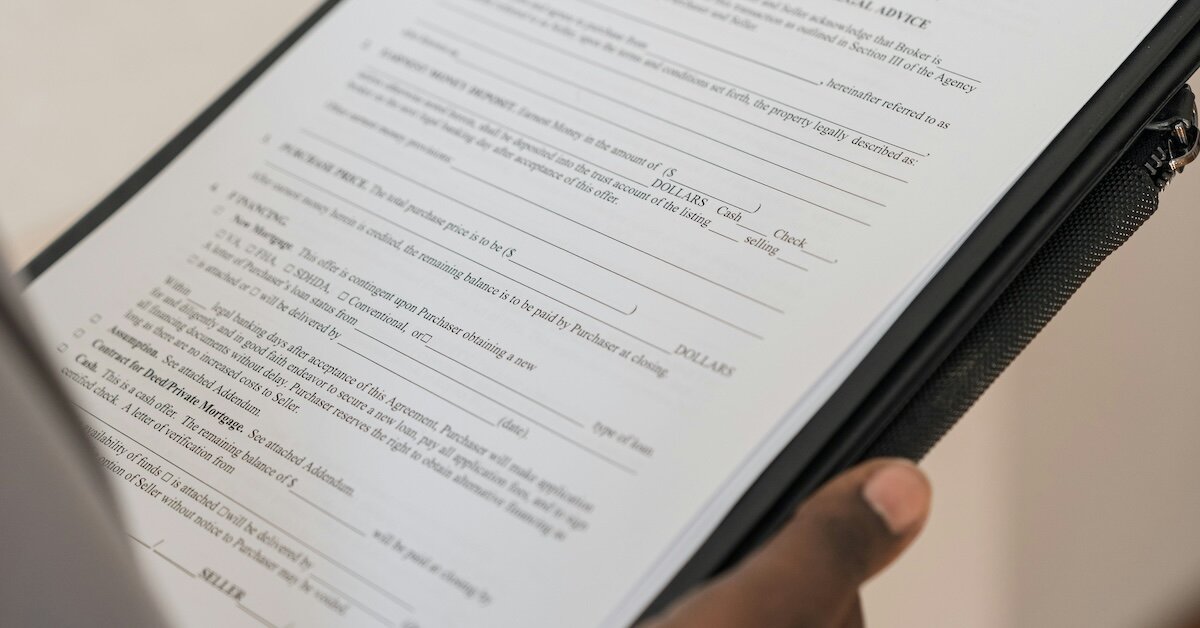 LEGAL ADVICE
and Seller acknowledge that Broker is
this transaction as outlined in Section III of the Agency
Purchaser and Seller.
and agrees to purchase from
, hereinafter referred to as
upon the terms and conditions set forth, the property legally described as:
EARNEST MONEY DEPOSIT. Earnest Money in the amount of ($ )
DOLLARS Cash Check
shall be deposited into the trust account of the listing selling
legal banking day after acceptance of this offer.
Other earnest money provisions
3. PURCHASE PRICE. The total purchase price is to be ($ )
DOLLARS
earnest money herein is credited, the remaining balance is to be paid by Purchaser at closing.
4. IF FINANCING.
☐ New Mortgage. This offer is contingent upon Purchaser obtaining a new
☐ VA, ☐ FHA, ☐ SDHDA, ☐ Conventional, or☐ type of loan.
A letter of Purchaser's loan status from
☐ is attached or ☐ will be delivered by (date).
Within legal banking days after acceptance of this Agreement, Purchaser will make application
for and diligently and in good faith endeavor to secure a new loan, pay all application fees, and to sign
all financing documents without delay. Purchaser reserves the right to obtain alternative financing so
long as there are no increased costs to Seller.
☐ Assumption. See attached Addendum.
☐ Contract for Deed/Private Mortgage. See attached Addendum.
☐ Cash. This is a cash offer. The remaining balance of $ will be paid at closing by
certified check. A letter of verification from
availability of funds ☐ is attached ☐ will be delivered by
option of Seller without notice to Purchaser may be voided.
/ SELLER